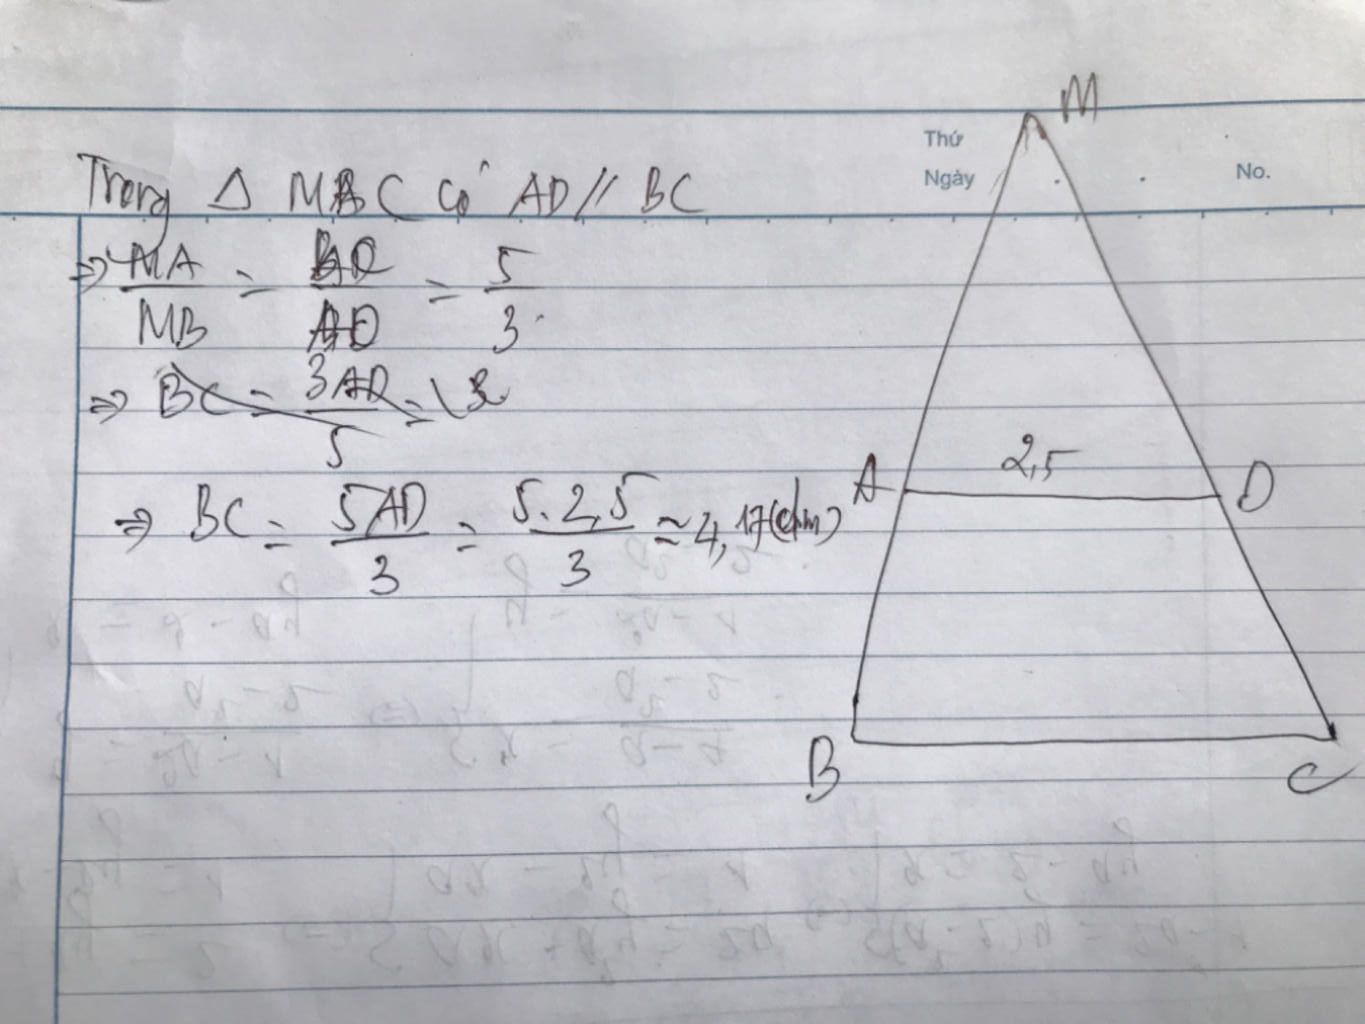 M
Thứ
Ngày
No.
Trong Δ MBC có AD // BC
⇒ MA/MB = = 5/3
⇒ BC = 3AD/5 =
⇒ BC = 5AD/3 = 5.2,5/3 ≈ 4,17
2,5
A
D
B
C